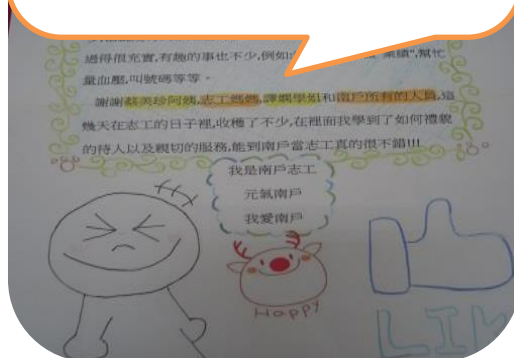 過得很充實,有趣的事也不少,例如
業績",幫忙
量血壓,叫號碼等等。
謝謝蔡美珍阿姨,志工媽媽,譯嫻學姐和南戶所有的人員,這
幾天在志工的日子裡,收穫了不少,在裡面我學到了如何禮貌
的待人以及親切的服務,能到南戶當志工真的很不錯!!!
我是南戶志工
元氣南戶
我愛南戶
Happy
LIK